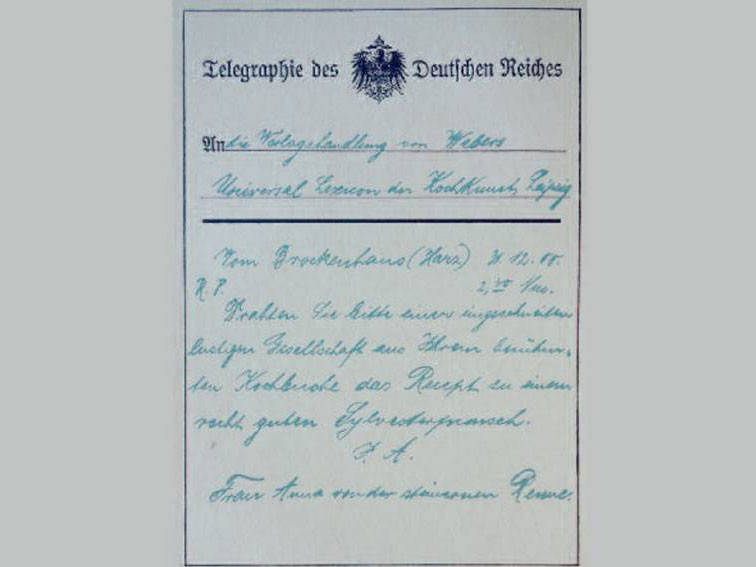 Telegraphie des Deutschen Reiches
An die Verlagshandlung von Webers
Universal Lexicon der Kochkunst, Leipzig
Vom Brockenhaus (Harz) 31. 12. 00.
R. P. 2,40 Nm.
Drahten Sie bitte einer eingeschneiten
lustigen Gesellschaft aus Ihrem berühm-
ten Kochbuche das Recept zu einem
recht guten Sylvesterpunsch.
I. A.
Frau Anna von der steinernen Renne.